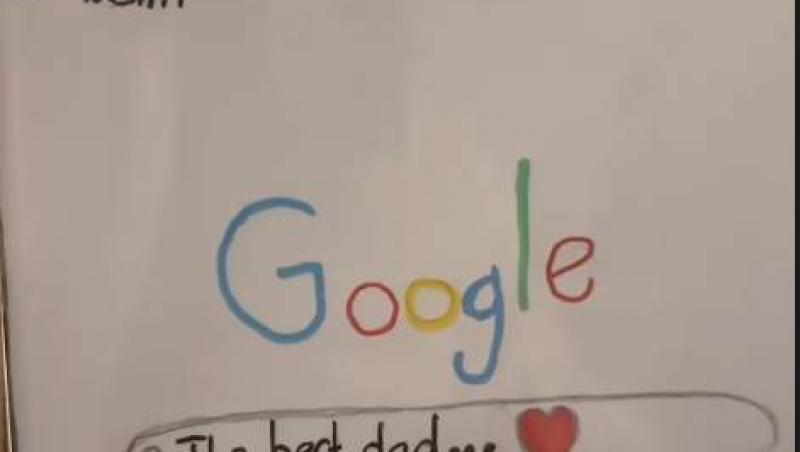 Google
The best dad...